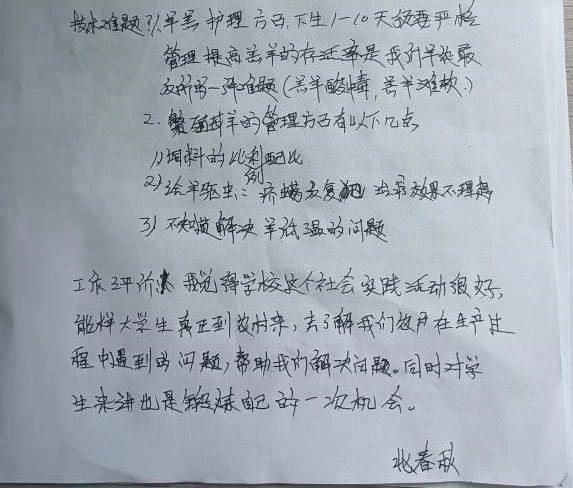 技术难题: 1. 羊羔护理方面,下生1-10天须要严格
管理提高羔羊的存活率是我们羊牧最
及所为一种难题(羔羊酸毒,羔羊难软.)
2. 繁殖母羊的管理方面有以下几点
1) 饲料的比例配比
2) 给羊驱虫: 疥螨反复 治疗效果不理想
3) 不知道解决羊低温的问题
工作评价: 我觉得学校这个社会实践活动很好,
能样大学生真正到农村来,去了解我们牧户在生产过
程中遇到的问题,帮助我们解决问题。同时对学
生来讲也是锻炼自己的一次机会。
春秋